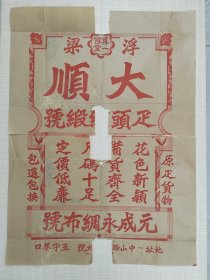 浮梁
大順
疋頭綢緞號
原正貨物
花色新穎
貨齊全
尺碼十足
定價低廉
包退包換
元成永綢布號
地址 中山路 號